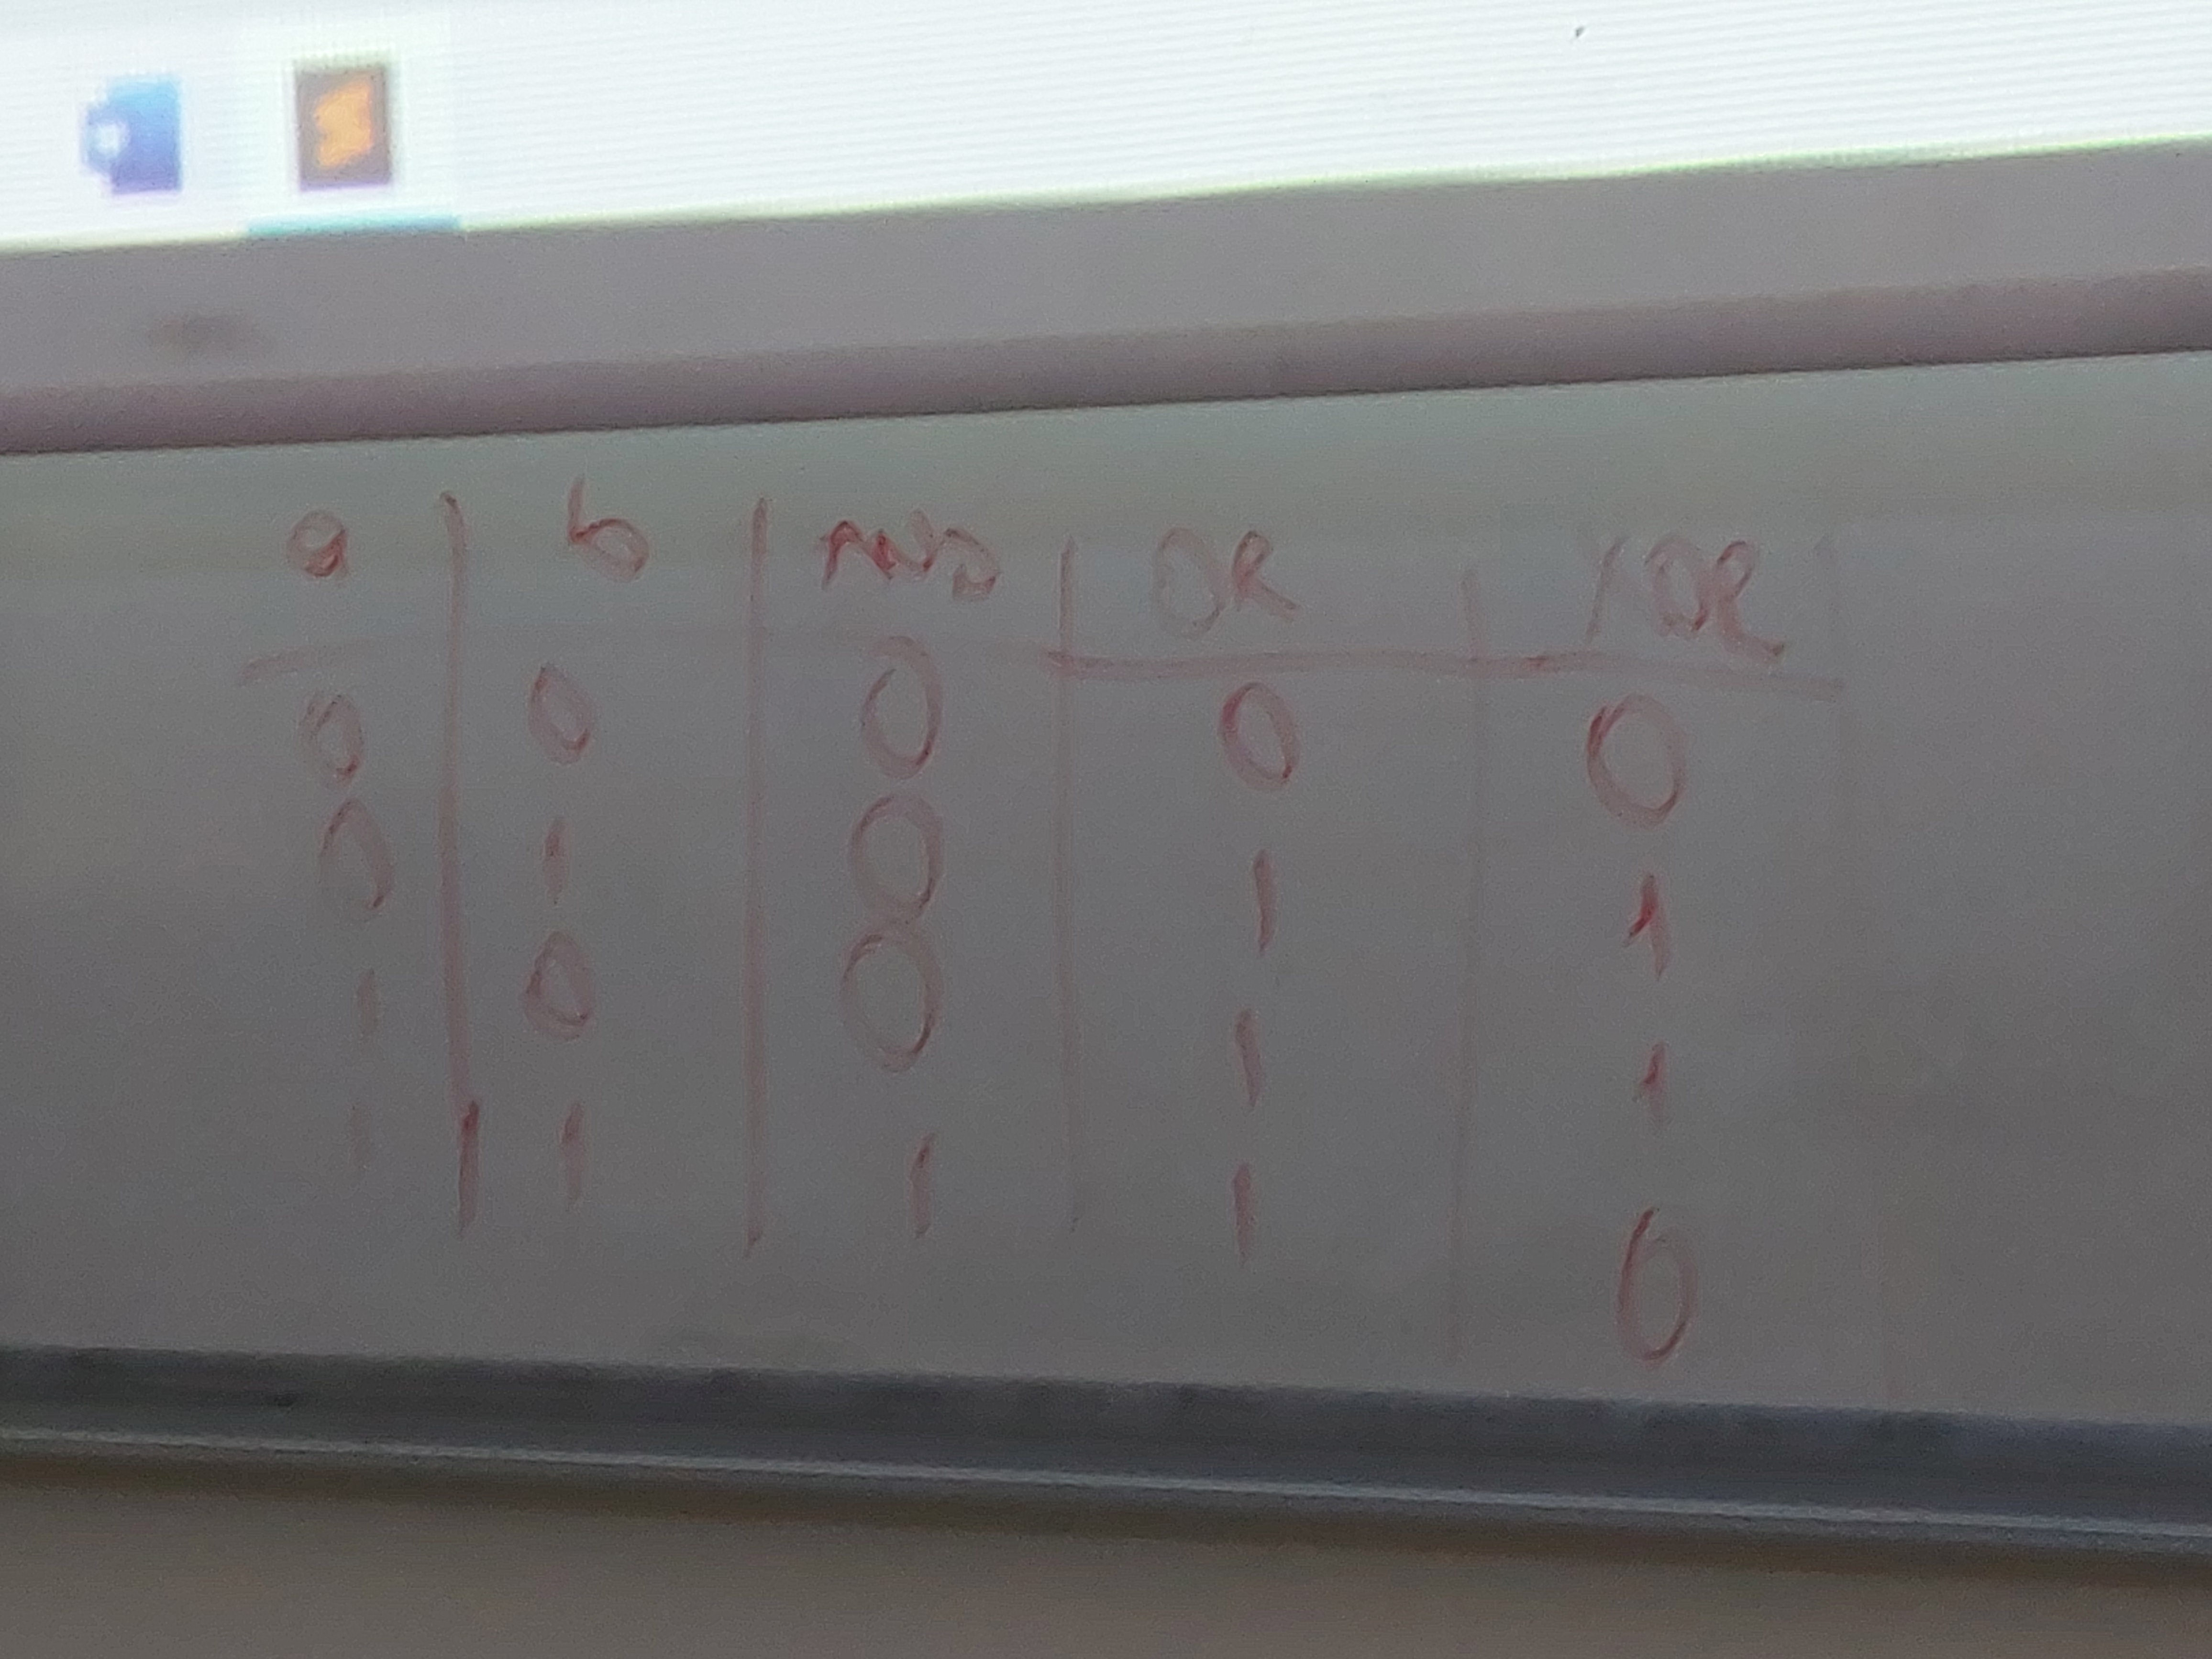 a | b | AND | OR | XOR
0 | 0 | 0 | 0 | 0
0 | 1 | 0 | 1 | 1
1 | 0 | 0 | 1 | 1
1 | 1 | 1 | 1 | 0